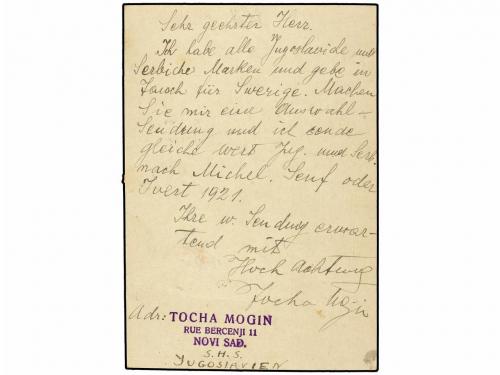 Sehr geehrter Herr.
Ich habe alle Jugoslavide und
Serbiche Marken und gebe in
Tausch für Swerige. Machen
Sie mir eine Auswahl-
Sendung und ich sende
gleiche wert Jug. und Serb.
nach Michel. Senf oder
Ivert 1921.
Ihre w. Sendung erwar-
tend mit
Hoch Achtung
Tocha Mogin
Adr: TOCHA MOGIN
RUE BERCENJI 11
NOVI SAD.
S. H. S.
YUGOSLAVIEN